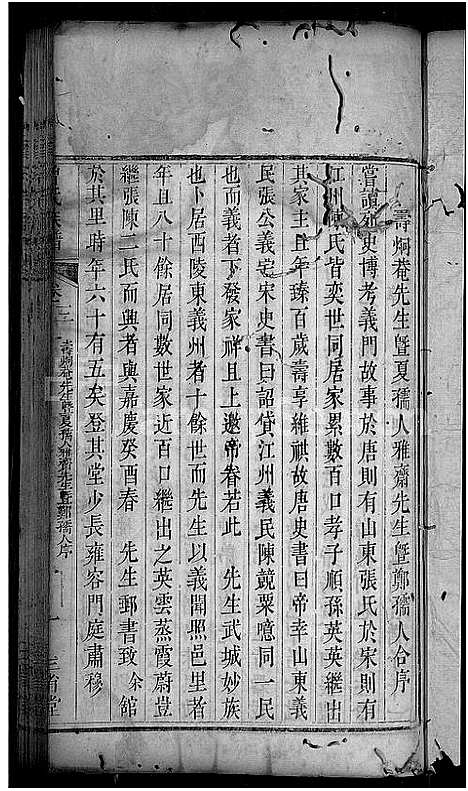 壽炯菴先生暨夏孺人雅齋先生暨鄭孺人合序
嘗讀列史博考義門故事於唐則有山東張氏於宋則有
江州陳氏皆奕世同居家累數百口孝子順孫英英繼出
其家主且年臻百歲壽享維祺故唐史書曰帝幸山東義
民張公義宅宋史書曰詔貸江州義民陳競粟噫同一民
也而義者下發家祥且上邀帝眷若此 先生武城妙族
也卜居西陵東義州者十餘世而先生以義聞照邑里者
年且八十餘居同數世家近百口繼出之英雲蒸霞蔚豈
繼張陳二氏而興者與嘉慶癸酉春 先生郵書致余館
於其里時年六十有五矣登其堂少長雍容門庭肅穆
氏族譜
卷三
壽炯菴先生暨夏孺人雅齋先生暨鄭孺人序
一
三省堂